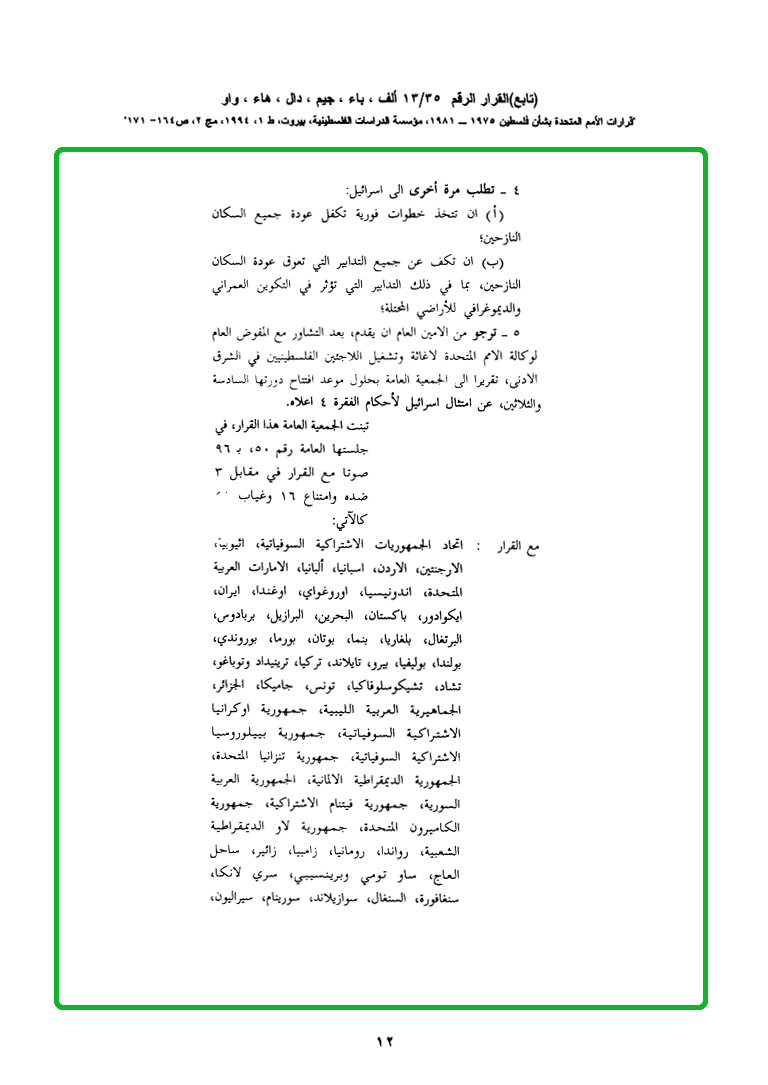 (تابع)القرار الرقم ١٣/٣٥ ألف ، باء ، جيم ، دال ، هاء ، واو
قرارات الأمم المتحدة بشأن فلسطين ١٩٧٥ ــ ١٩٨١، مؤسسة الدراسات الفلسطينية، بيروت، ط ١، ١٩٩٤، مج ٢، ص١٦٤- ١٧١
٤ ـ تطلب مرة أخرى الى اسرائيل:
(أ) ان تتخذ خطوات فورية تكفل عودة جميع السكان
النازحين؛
(ب) ان تكف عن جميع التدابير التي تعوق عودة السكان
النازحين، بما في ذلك التدابير التي تؤثر في التكوين العمراني
والديموغرافي للأراضي المحتلة؛
٥ ـ ترجو من الامين العام ان يقدم، بعد التشاور مع المفوض العام
لوكالة الامم المتحدة لاغاثة وتشغيل اللاجئين الفلسطينيين في الشرق
الادنى، تقريرا الى الجمعية العامة بحلول موعد افتتاح دورتها السادسة
والثلاثين، عن امتثال اسرائيل لأحكام الفقرة ٤ اعلاه.
تبنت الجمعية العامة هذا القرار، في
جلستها العامة رقم ٥٠، بـ ٩٦
صوتا مع القرار في مقابل ٣
ضده وامتناع ١٦ وغياب
كالآتي:
مع القرار : اتحاد الجمهوريات الاشتراكية السوفياتية، اثيوبيا،
الارجنتين، الاردن، اسبانيا، ألبانيا، الامارات العربية
المتحدة، اندونيسيا، اوروغواي، اوغندا، ايران،
ايكوادور، باكستان، البحرين، البرازيل، بربادوس،
البرتغال، بلغاريا، بنما، بوتان، بورما، بوروندي،
بولندا، بوليفيا، بيرو، تايلاند، تركيا، ترينيداد وتوباغو،
تشاد، تشيكوسلوفاكيا، تونس، جاميكا، الجزائر،
الجماهيرية العربية الليبية، جمهورية اوكرانيا
الاشتراكية السوفياتية، جمهورية بييلوروسيا
الاشتراكية السوفياتية، جمهورية تنزانيا المتحدة،
الجمهورية الديمقراطية الالمانية، الجمهورية العربية
السورية، جمهورية فيتنام الاشتراكية، جمهورية
الكاميرون المتحدة، جمهورية لاو الديمقراطية
الشعبية، رواندا، رومانيا، زامبيا، زائير، ساحل
العاج، ساو تومي وبرينسيبي، سري لانكا،
سنغافورة، السنغال، سوازيلاند، سورينام، سيراليون،
١٢